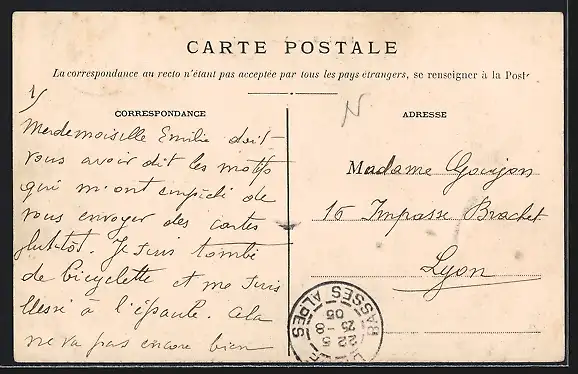 CARTE POSTALE
La correspondance au recto n'étant pas acceptée par tous les pays étrangers, se renseigner à la Poste
1/
N
CORRESPONDANCE
ADRESSE
Mademoiselle Emilie doit
vous avoir dit les motifs
qui m'ont empêché de
vous envoyer des cartes
plutôt. Je suis tombé
de bicyclette et me suis
blessé à l'épaule. Cela
ne va pas encore bien
Madame Goujon
16 Impasse Brachet
Lyon
BASSES ALPES
22 5
25 - 8
05